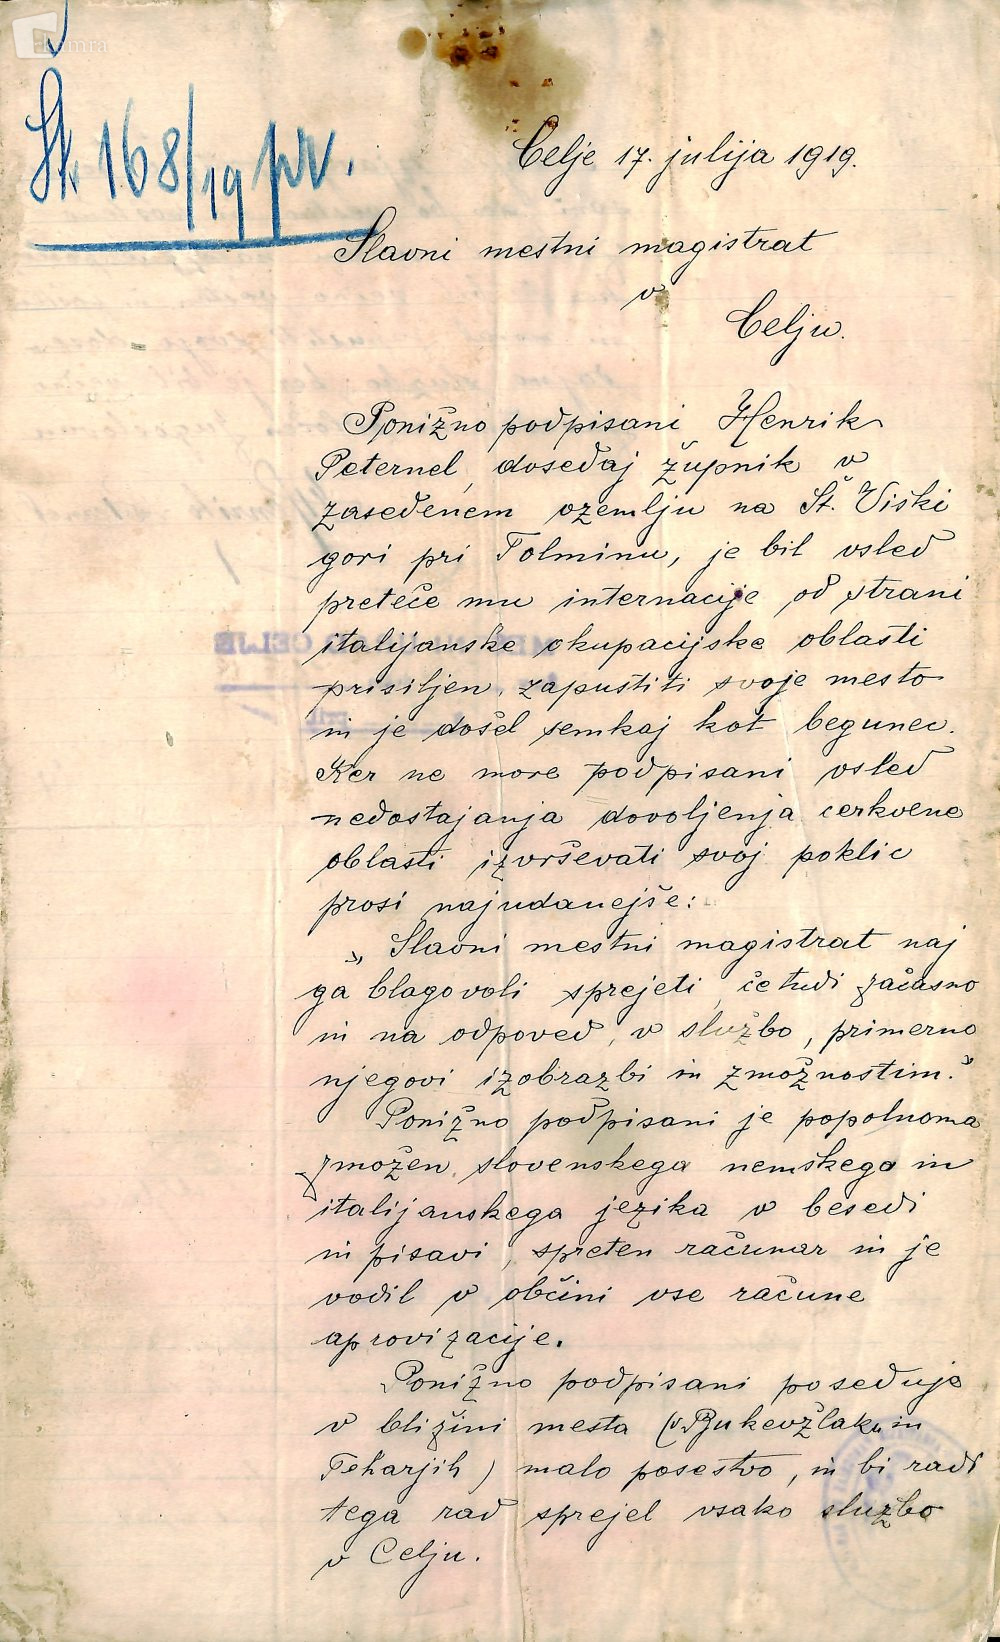 kamra
Šk 168/19 pr.
Celje 17. julija 1919.
Slavni mestni magistrat
v
Celju.
Ponižno podpisani Henrik
Peternel, dosedaj župnik v
zasedenem ozemlju na Št. Viški
gori pri Tolminu, je bil vsled
preteče mu internacije od strani
italijanske okupacijske oblasti
prisiljen, zapustiti svoje mesto
in je došel semkaj kot begunec.
Ker ne more podpisani vsled
nedostajanja dovoljenja cerkvene
oblasti izvrševati svoj poklic
prosi najudanejše:
„Slavni mestni magistrat naj
ga blagovoli sprejeti, četudi začasno
in na odpoved, v službo, primerno
njegovi izobrazbi in zmožnostim."
Ponižno podpisani je popolnoma
zmožen, slovenskega nemškega in
italijanskega jezika v besedi
in pisavi, spreten računar in je
vodil v občini vse račune
aprovizacije.
Ponižno podpisani poseduje
v bližini mesta (v Bukevžlaku in
Teharjih) malo posestvo, in bi radi
tega rad sprejel vsako službo
v Celju.